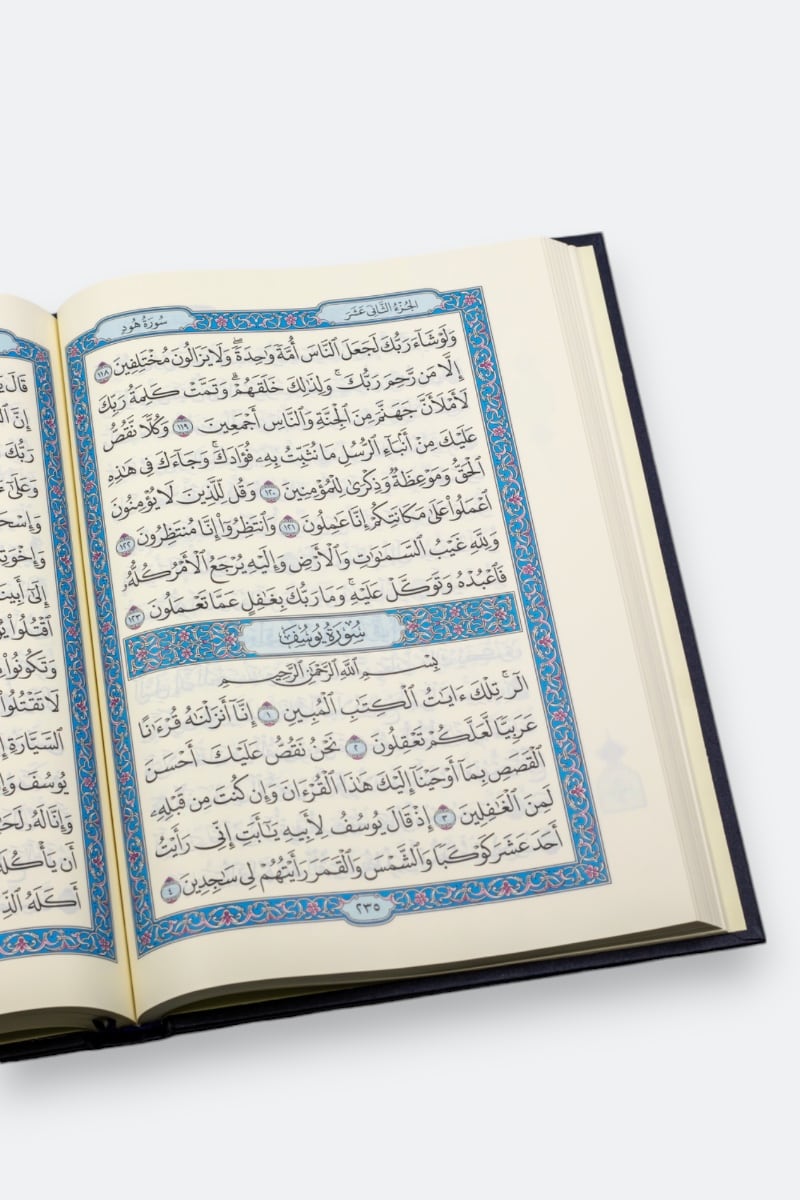 الجُزْءُ الثَّانِي عَشَرَ
سُورَةُ هُودٍ
وَلَوْ شَآءَ رَبُّكَ لَجَعَلَ ٱلنَّاسَ أُمَّةً وَٰحِدَةً ۖ وَلَا يَزَالُونَ مُخْتَلِفِينَ ١١٨
إِلَّا مَن رَّحِمَ رَبُّكَ ۚ وَلِذَٰلِكَ خَلَقَهُمْ ۗ وَتَمَّتْ كَلِمَةُ رَبِّكَ
لَأَمْلَأَنَّ جَهَنَّمَ مِنَ ٱلْجِنَّةِ وَٱلنَّاسِ أَجْمَعِينَ ١١٩ وَكُلًّا نَّقُصُّ
عَلَيْكَ مِنْ أَنۢبَآءِ ٱلرُّسُلِ مَا نُثَبِّتُ بِهِۦ فُؤَادَكَ ۚ وَجَآءَكَ فِى هَٰذِهِ
ٱلْحَقُّ وَمَوْعِظَةٌ وَذِكْرَىٰ لِلْمُؤْمِنِينَ ١٢٠ وَقُل لِّلَّذِينَ لَا يُؤْمِنُونَ
ٱعْمَلُوا۟ عَلَىٰ مَكَانَتِكُمْ إِنَّا عَٰمِلُونَ ١٢١ وَٱنتَظِرُوٓا۟ إِنَّا مُنتَظِرُونَ ١٢٢
وَلِلَّهِ غَيْبُ ٱلسَّمَٰوَٰتِ وَٱلْأَرْضِ وَإِلَيْهِ يُرْجَعُ ٱلْأَمْرُ كُلُّهُۥ
فَٱعْبُدْهُ وَتَوَكَّلْ عَلَيْهِ ۚ وَمَا رَبُّكَ بِغَٰفِلٍ عَمَّا تَعْمَلُونَ ١٢٣
سُورَةُ يُوسُفَ
بِسْمِ ٱللَّهِ ٱلرَّحْمَٰنِ ٱلرَّحِيمِ
الٓر ۚ تِلْكَ ءَايَٰتُ ٱلْكِتَٰبِ ٱلْمُبِينِ ١ إِنَّآ أَنزَلْنَٰهُ قُرْءَٰنًا
عَرَبِيًّا لَّعَلَّكُمْ تَعْقِلُونَ ٢ نَحْنُ نَقُصُّ عَلَيْكَ أَحْسَنَ
ٱلْقَصَصِ بِمَآ أَوْحَيْنَآ إِلَيْكَ هَٰذَا ٱلْقُرْءَانَ وَإِن كُنتَ مِن قَبْلِهِۦ
لَمِنَ ٱلْغَٰفِلِينَ ٣ إِذْ قَالَ يُوسُفُ لِأَبِيهِ يَٰٓأَبَتِ إِنِّى رَأَيْتُ
أَحَدَ عَشَرَ كَوْكَبًا وَٱلشَّمْسَ وَٱلْقَمَرَ رَأَيْتُهُمْ لِى سَٰجِدِينَ ٤
٢٣٥
قَالَ
إِنَّ
رَبُّكَ
وَعَلَىٰٓ
إِلَىٰٓ أَبِينَا
ٱقْتُلُوا۟
وَتَكُونُوا۟
لَا تَقْتُلُوا۟
ٱلسَّيَّارَةِ
يُوسُفَ
وَإِنَّا لَهُۥ
أَن يَأْكُلَهُ
أَكَلَهُ